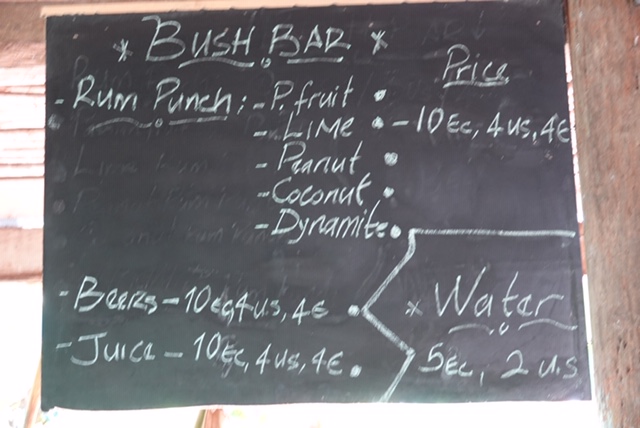 * BUSH BAR *
Price
- Rum Punch: - P. fruit
- LIME - 10 EC, 4 US, 4€
- Peanut
- Coconut
- Dynamite
- Beers - 10 EC, 4 US, 4€
- Juice - 10 EC, 4 US, 4€
* Water
5 EC, 2 U.S